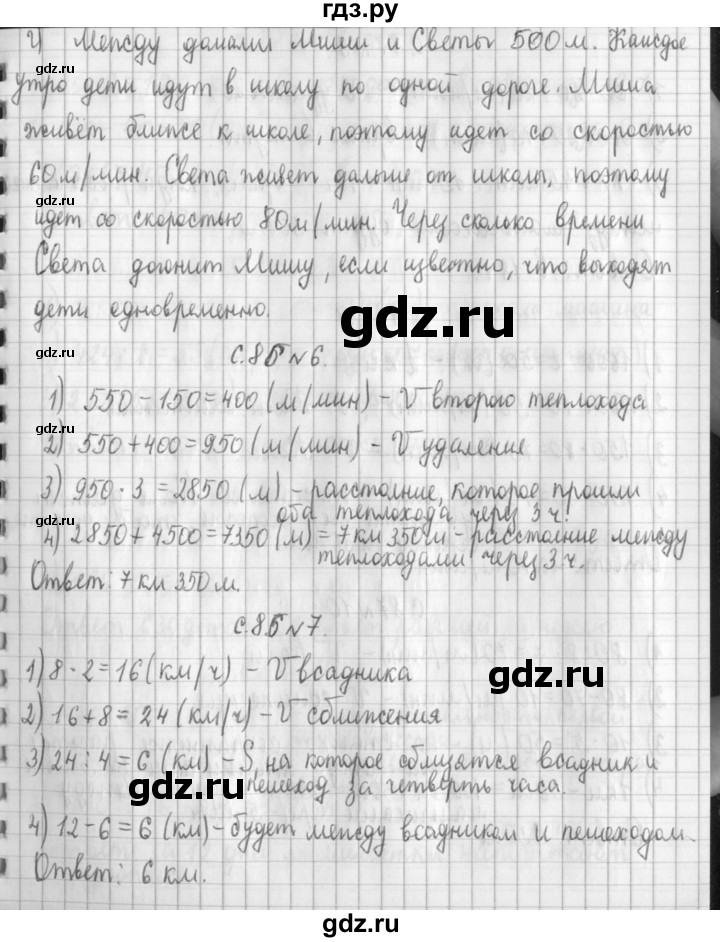 гдз.ру
г) Между домами Миши и Светы 500 м. Каждое
утро дети идут в школу по одной дороге. Миша
живёт ближе к школе, поэтому идет со скоростью
60 м/мин. Света живет дальше от школы, поэтому
идет со скоростью 80 м/мин. Через сколько времени
Света догонит Мишу, если известно, что выходят
дети одновременно.
с.85 №6.
1) 550-150=400 (м/мин) - V второго теплохода
2) 550+400=950 (м/мин) - V удаление
3) 950·3=2850 (м) - расстояние, которое прошли
оба теплохода через 3 ч.
4) 2850+4500=7350 (м) = 7 км 350 м - расстояние между
теплоходами через 3 ч.
Ответ: 7 км 350 м.
с.85 №7.
1) 8·2=16 (км/ч) - V всадника
2) 16+8=24 (км/ч) - V сближения
3) 24:4=6 (км) - S, на которое сблизятся всадник и
пешеход за четверть часа.
4) 12-6=6 (км) - будет между всадником и пешеходом.
Ответ: 6 км.
gdz.ru
gdz.ru
gdz.ru
gdz.ru
gdz.ru
gdz.ru
gdz.ru
gdz.ru
gdz.ru
gdz.ru
gdz.ru